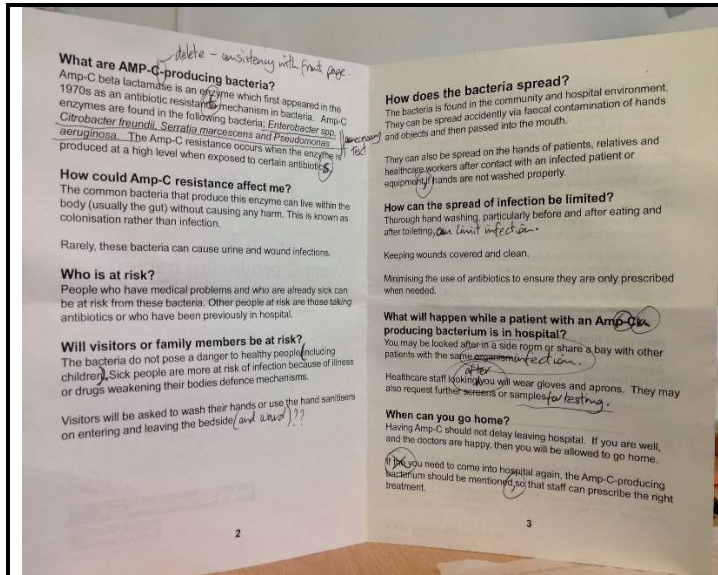 delete - consistency with front page.
What are AMP-C-producing bacteria?
Amp-C beta lactamase is an enzyme which first appeared in the
1970s as an antibiotic resistant mechanism in bacteria. Amp-C
enzymes are found in the following bacteria; Enterobacter spp,
Citrobacter freundii, Serratia marcescens and Pseudomonas
aeruginosa. The Amp-C resistance occurs when the enzyme is
unnecessary
text
produced at a high level when exposed to certain antibiotics
How could Amp-C resistance affect me?
The common bacteria that produce this enzyme can live within the
body (usually the gut) without causing any harm. This is known as
colonisation rather than infection.
Rarely, these bacteria can cause urine and wound infections.
Who is at risk?
People who have medical problems and who are already sick can
be at risk from these bacteria. Other people at risk are those taking
antibiotics or who have been previously in hospital.
Will visitors or family members be at risk?
The bacteria do not pose a danger to healthy people (including
children). Sick people are more at risk of infection because of illness
or drugs weakening their bodies defence mechanisms.
Visitors will be asked to wash their hands or use the hand sanitisers
on entering and leaving the bedside (and ward)??
2
How does the bacteria spread?
The bacteria is found in the community and hospital environment.
They can be spread accidently via faecal contamination of hands
and objects and then passed into the mouth.
They can also be spread on the hands of patients, relatives and
healthcare workers after contact with an infected patient or
equipment, if hands are not washed properly.
How can the spread of infection be limited?
Thorough hand washing, particularly before and after eating and
after toileting, can limit infection.
Keeping wounds covered and clean.
Minimising the use of antibiotics to ensure they are only prescribed
when needed.
What will happen while a patient with an Amp-C
producing bacterium is in hospital?
You may be looked after in a side room or share a bay with other
patients with the same organism infection.
after
Healthcare staff looking you will wear gloves and aprons. They may
also request further screens or samples for testing.
When can you go home?
Having Amp-C should not delay leaving hospital. If you are well,
and the doctors are happy, then you will be allowed to go home.
If you need to come into hospital again, the Amp-C-producing
bacterium should be mentioned, so that staff can prescribe the right
treatment.
3